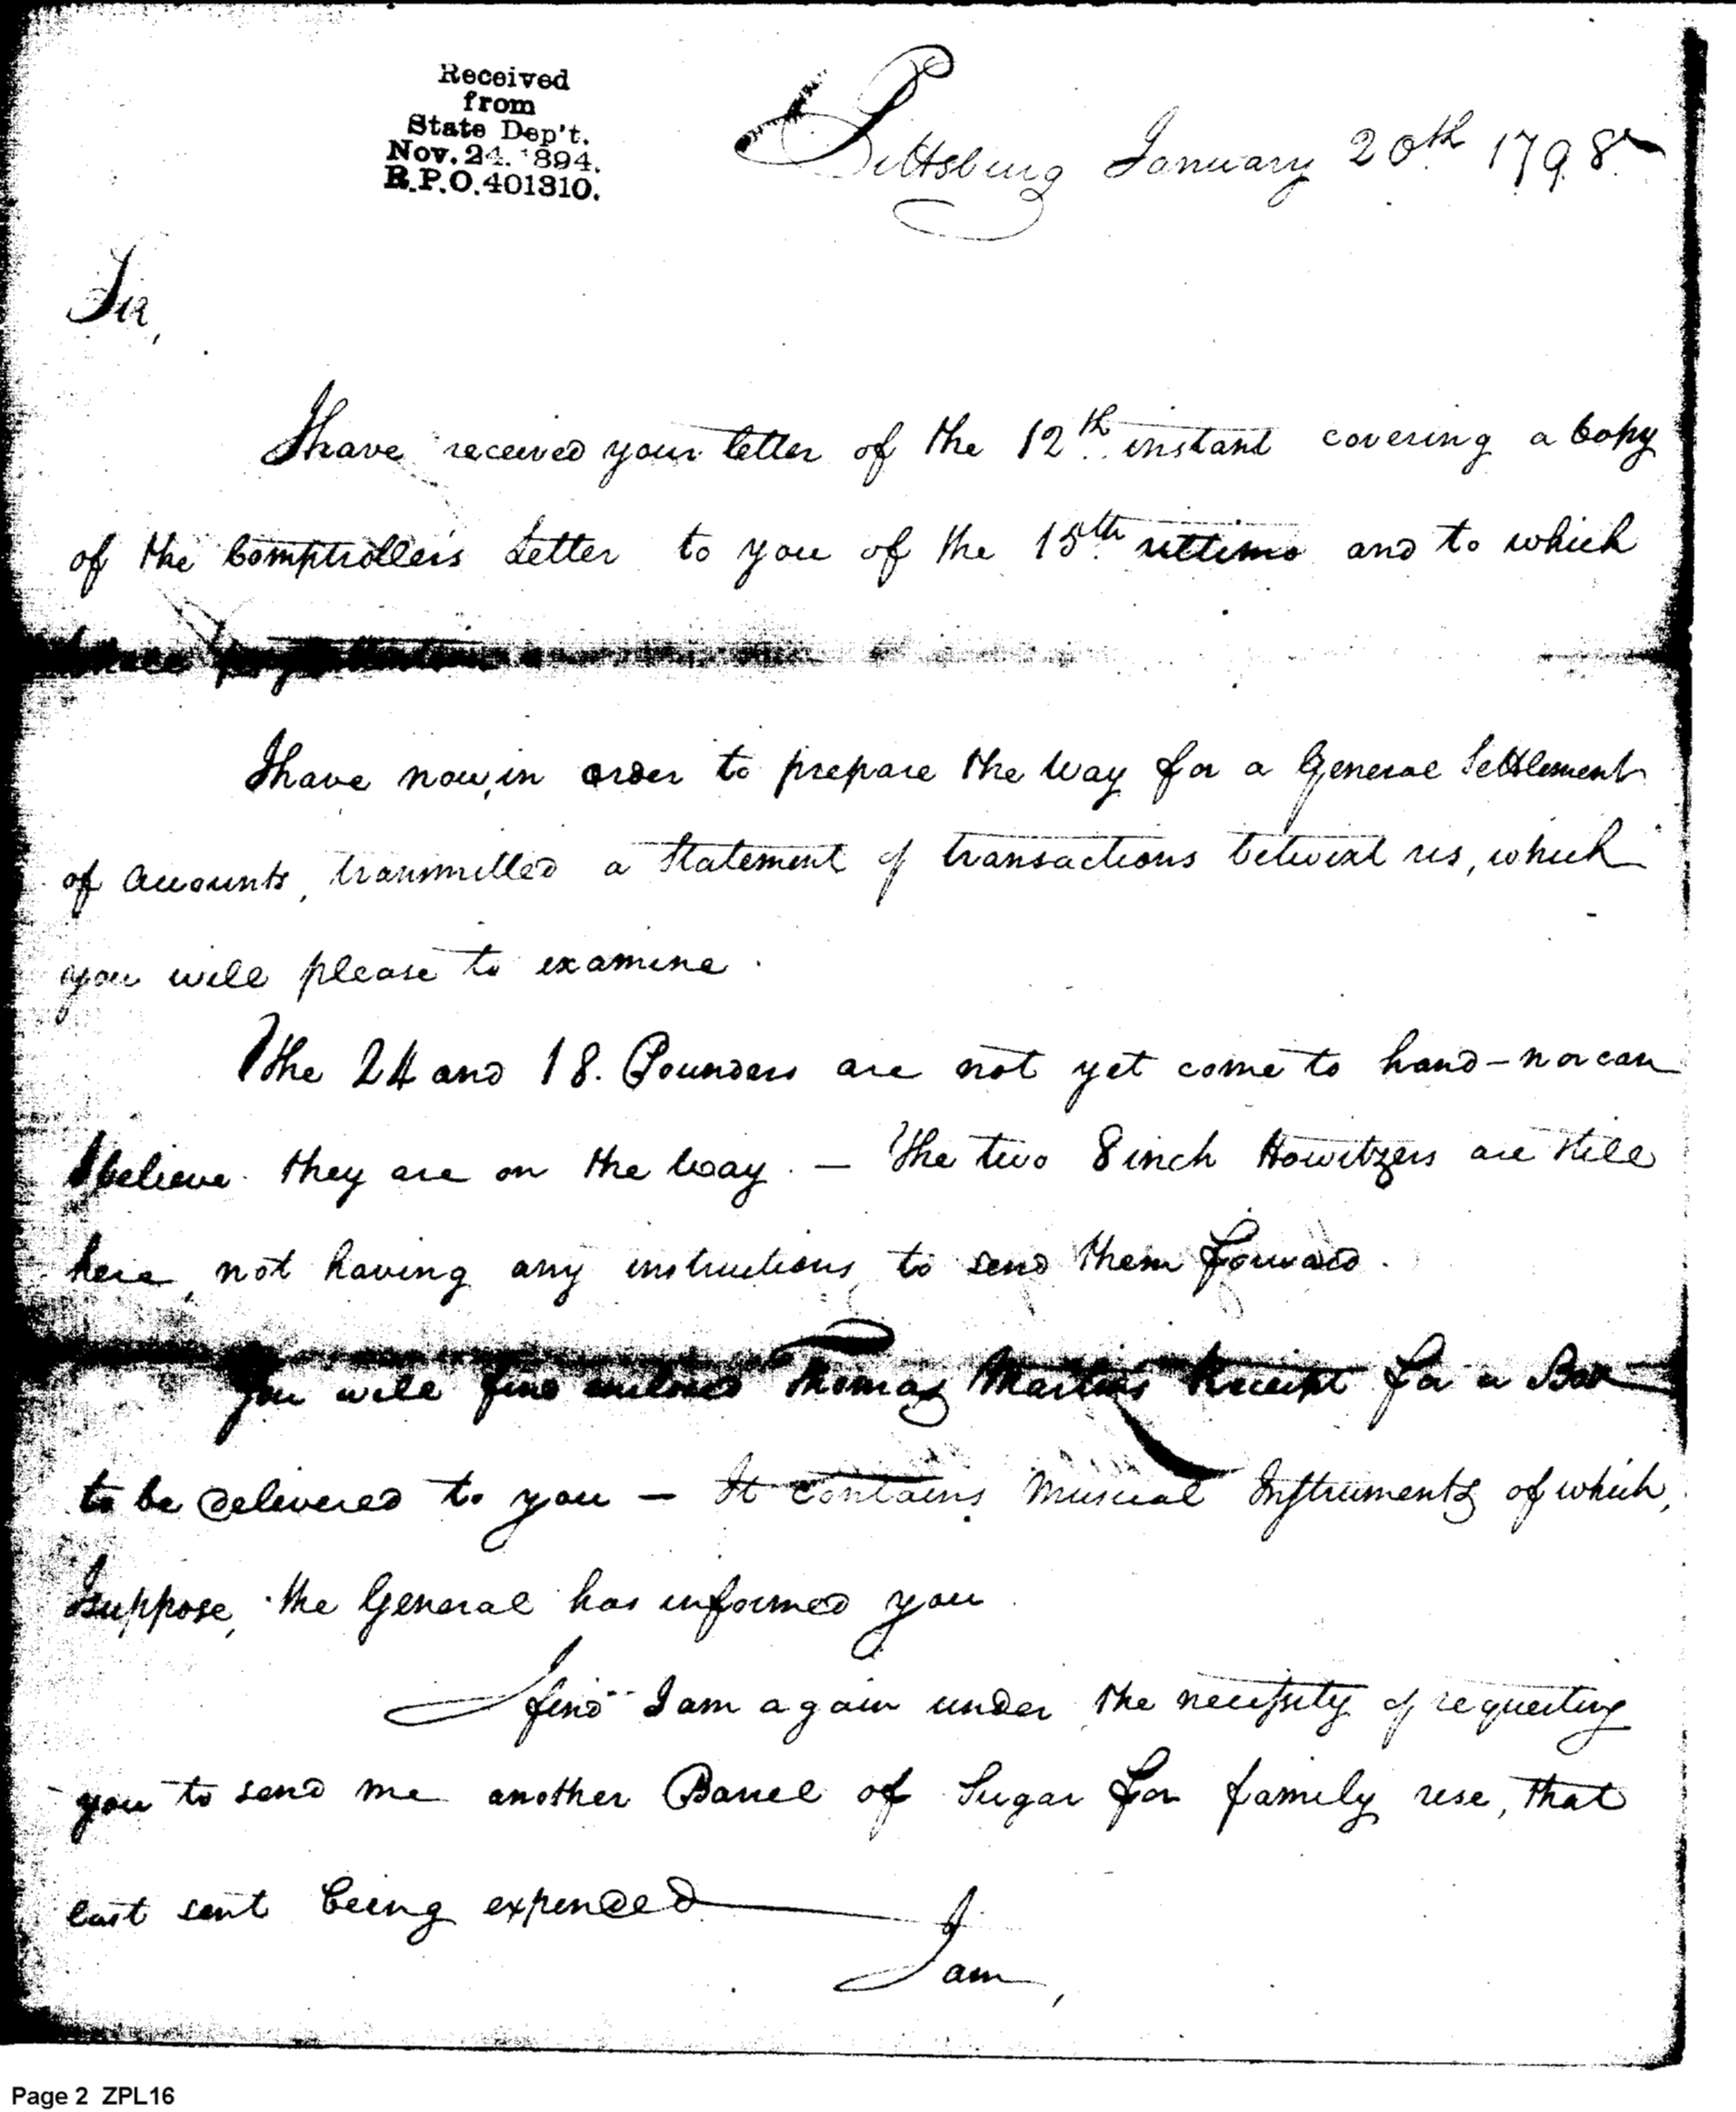 Received
from
State Dep't.
Nov. 24. 1894.
R.P.O. 401310.
Pittsburg January 20th 1798
Sir,
I have received your letter of the 12th instant covering a Copy
of the Comptrollers Letter to you of the 15th ultimo and to which
I have now, in order to prepare the Way for a General Settlement
of Accounts, transmitted a Statement of transactions betwixt us, which
you will please to examine.
The 24 and 18. Pounders are not yet come to hand - nor can
I believe they are on the Way. — The two 8 inch Howitzers are still
here, not having any instructions to send them forward.
You will find enclosed Thomas Martins Receipt for a Box
to be delivered to you — It contains Musical Instruments of which,
I suppose, the General has informed you
I find I am again under the necessity of requesting
you to send me another Barrel of Sugar for family use, that
last sent being expended
I am,
Page 2 ZPL16